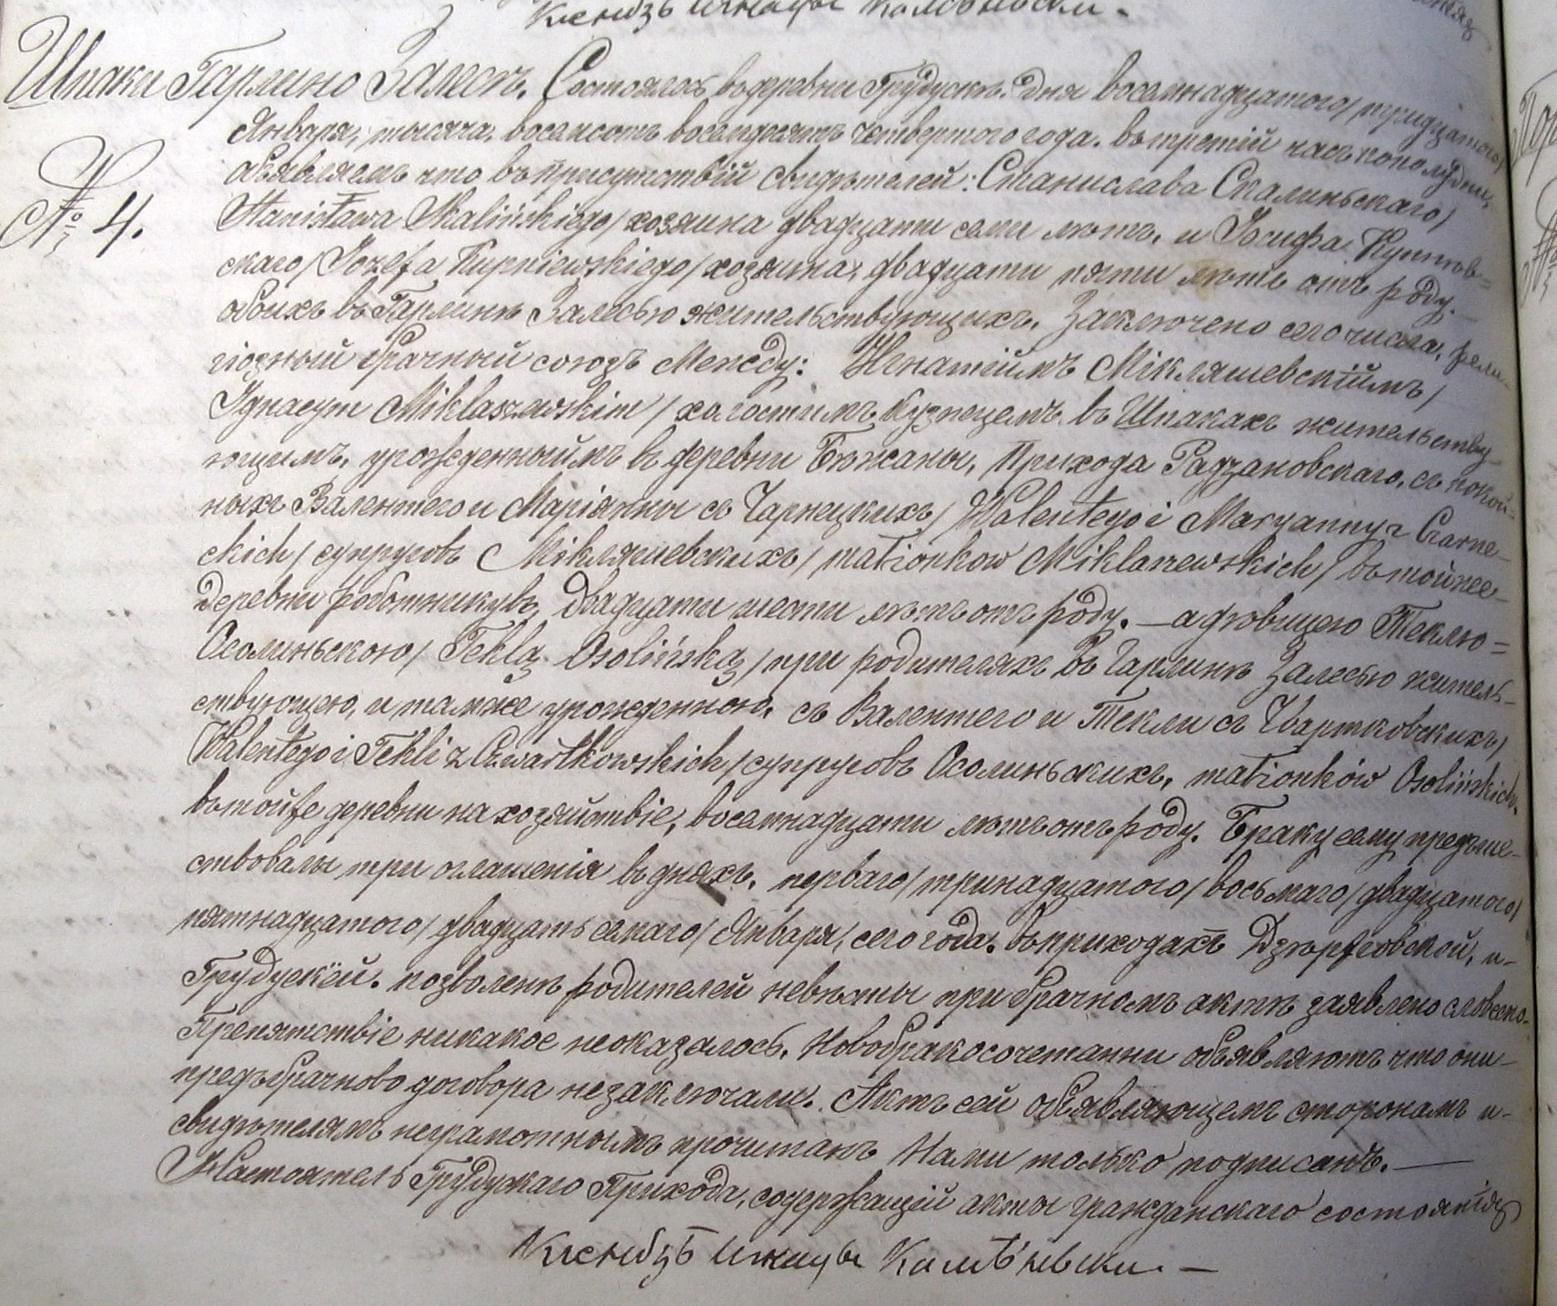 Ксендзъ Игнацы
Шпаки Гарлино Залесъ. Состоялось въ деревни Грудускъ дня восемнадцатого/тридцатого/
№ 4.
Января, тысяча восемсотъ восемдесятъ четвертого года, въ третій часъ пополудни,
объявляемъ что въ присутствіи свидѣтелей: Станислава Скалиньскаго/
Stanisława Skalińskiego/хозяина двадцати семи лѣтъ, и Іосифа Купнев=
скаго/Józefa Kupniewskiego/хозяина, двадцати пяти лѣтъ отъ роду.
обоихъ въ Гарлинѣ Залесью жительствующихъ. Заключено сего числа, рели-
гіозный брачный союзъ Между: Игнатіимъ Мікляшевскіймъ/
Ignacym Miklaszewskim/холостымъ кузнецемъ въ Шпакахъ жительству-
ющимъ, урожденныймъ въ деревни Бѣжаны, Прихода Радзановскаго, съ покой-
ныхъ Валентего и Маріянны съ Чарнецкихъ/Walentego i Maryanny z Czarne-
ckich/супруговъ Микляшевскихъ/małżonków Miklaszewskich/въ тойже
деревни роботникувъ, двадцати шести лѣтъ отъ роду. — а дѣвицею Теклю=
Осолиньскою/Teklą Osolińską/при родителяхъ въ Гарлинѣ Залесью житель-
ствующею, и тамже урожденною, съ Валентего и Текли съ Чвартковскихъ/
Walentego i Tekli z Czwartkowskich/супруговъ Осолиньскихъ, małżonków Osolińskich.
въ тойже деревни на хозяйствіе, восемнадцати лѣтъ отъ роду. Браку сему предше-
ствовалы три оглашенія въ дняхъ, перваго/тринадцатого/восьмаго/двадцатого/
пятнадцатого/двадцать семаго/Января, сего года, въ приходахъ Дзѣржговской, и-
Грудускей. позволенѣ родителей невѣсты при брачномъ актѣ заявлено словесно.
Препятствіе никакое неоказалось. Новобракосочетанни объявляютъ что они-
предъбрачново договора незаключали. Актъ сей объявляющемъ сторонамъ и-
свидѣтелямъ неграмотнымъ прочитанъ Нами только подписанъ. —
Настоятель Грудускаго Прихода, содержащій акты гражданскаго состоянія
Ксендзъ Игнацы